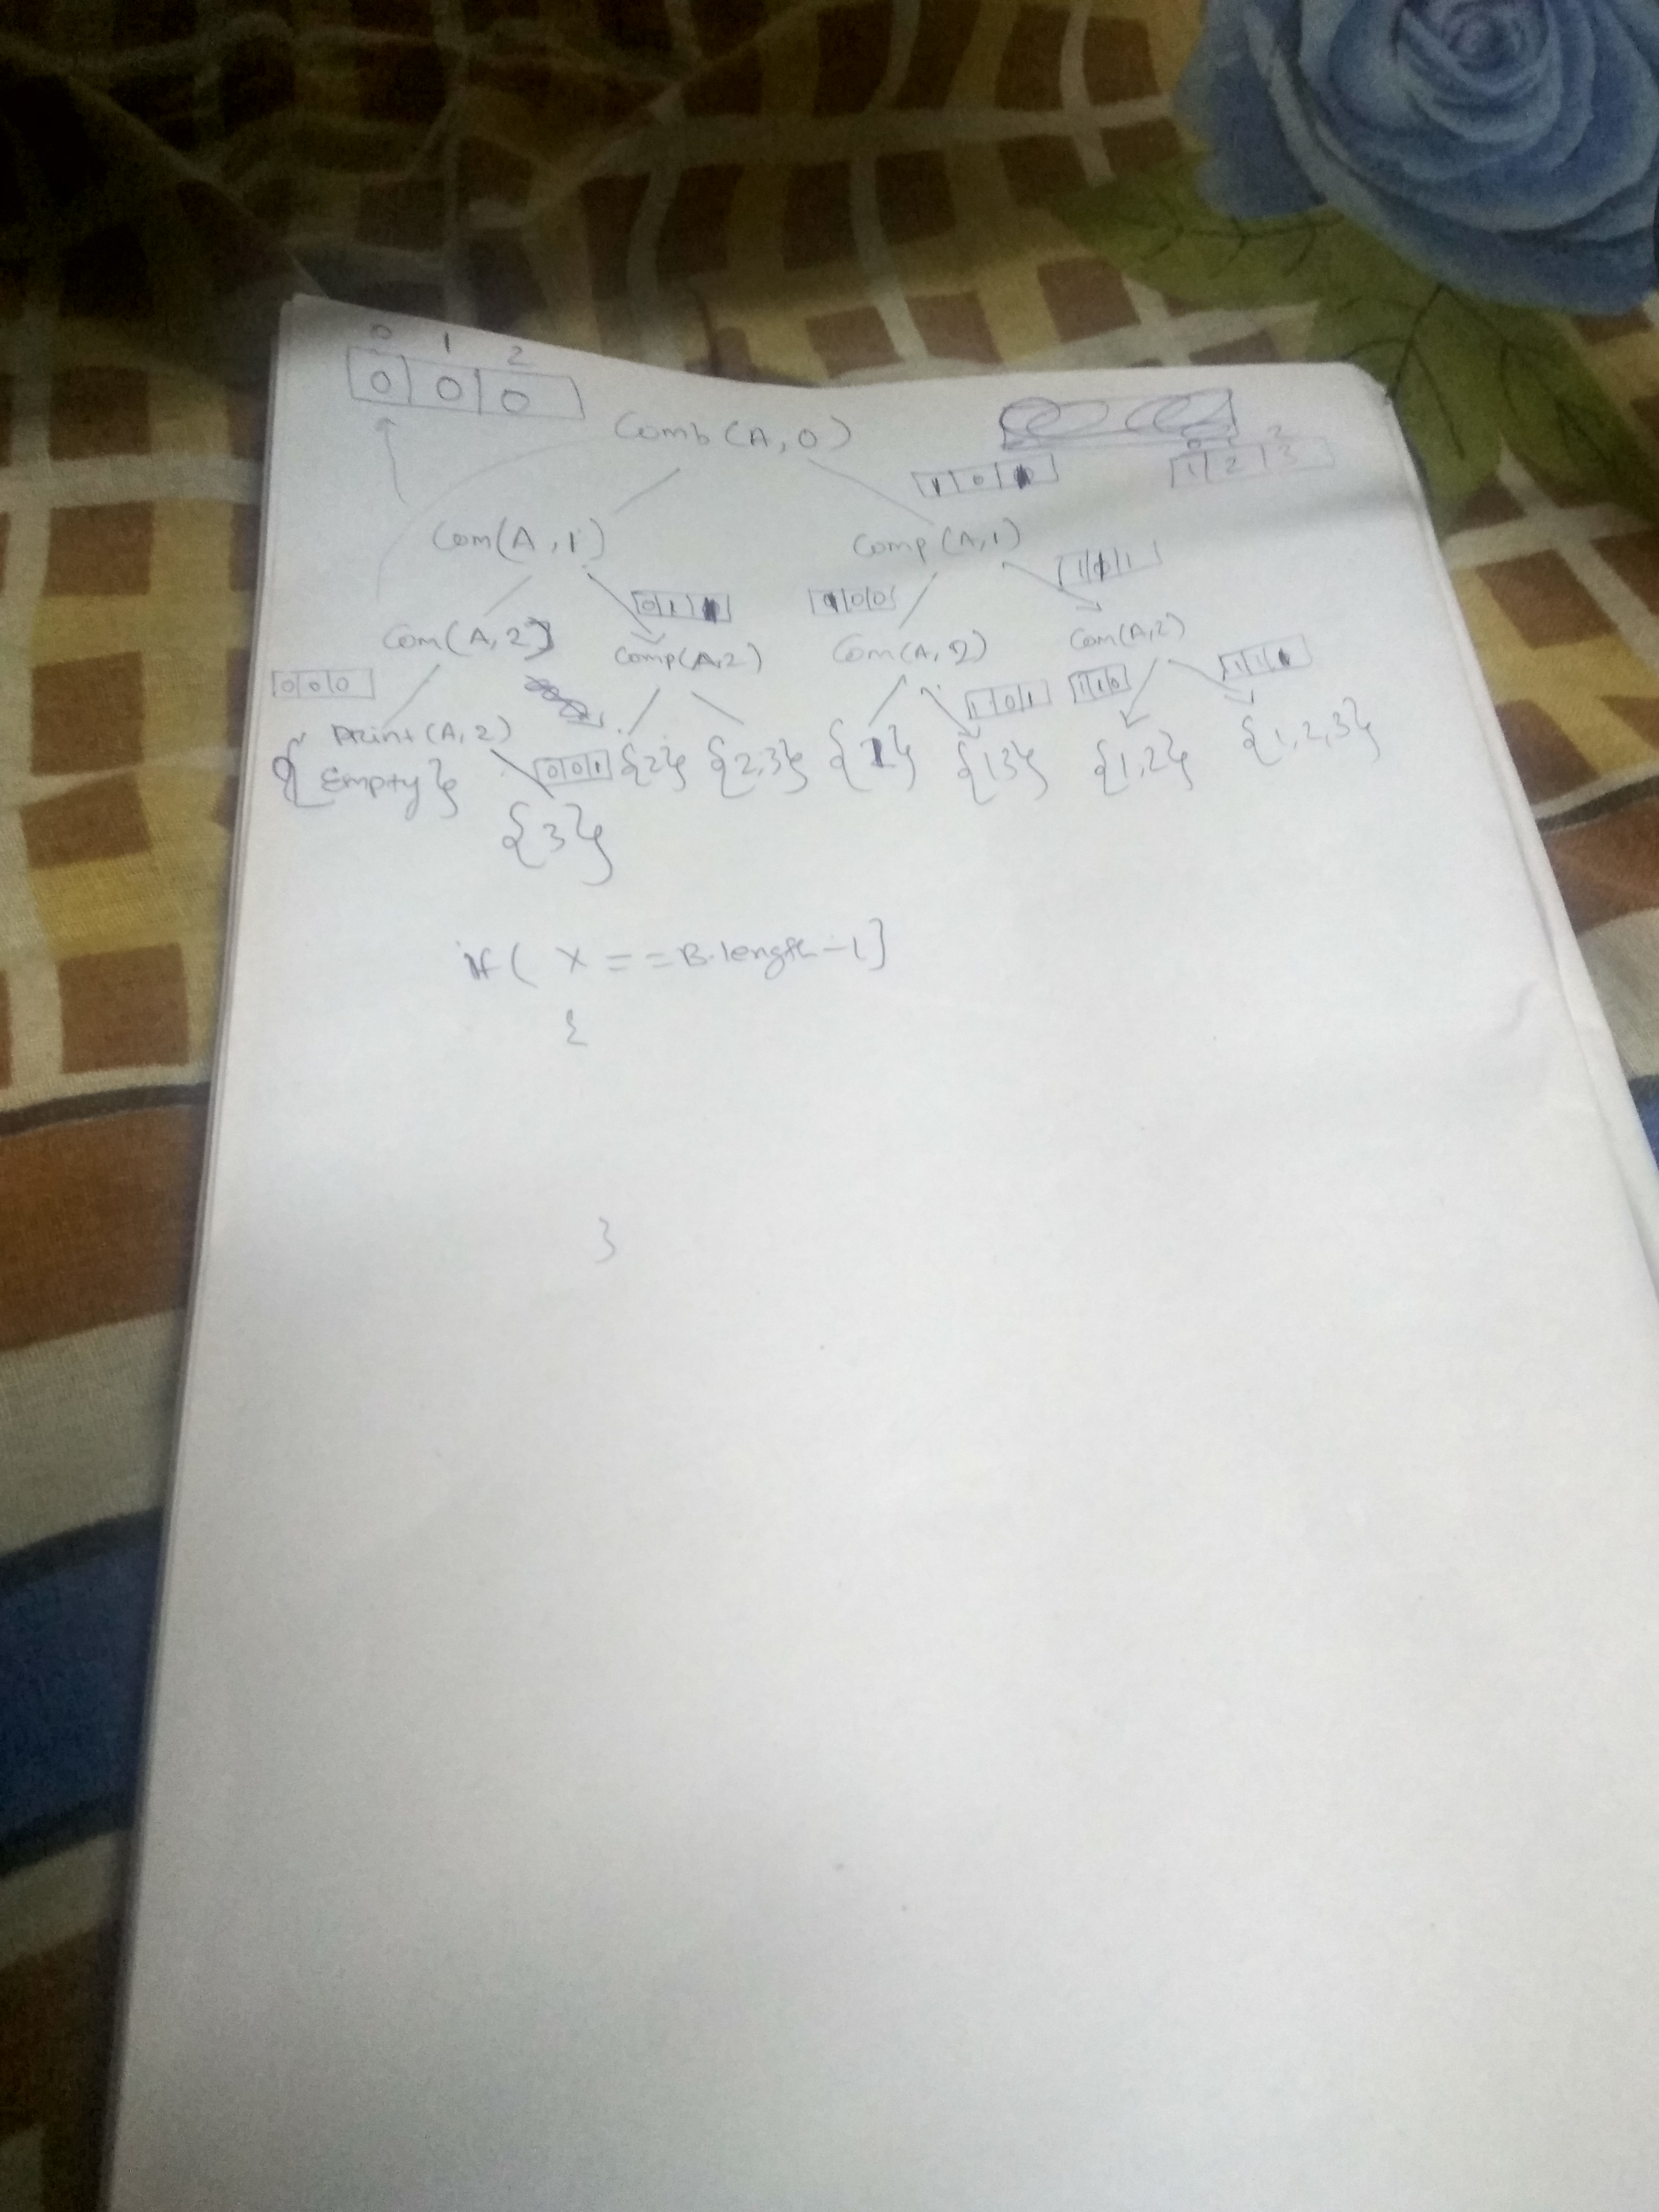 0 1 2
0 0 0
Comb(A,0)
1 0
1 2 3
Com(A,1)
Comp(A,1)
0 1
1 0 0
1 1
Com(A,2)
Comp(A,2)
Com(A,2)
Com(A,2)
0 0 0
1 0 1
1 1 0
1 1 1
Print(A,2)
{Empty}
0 0 1
{2}
{2,3}
{1}
{13}
{1,2}
{1,2,3}
{3}
if( X==B.length-1]
{
}